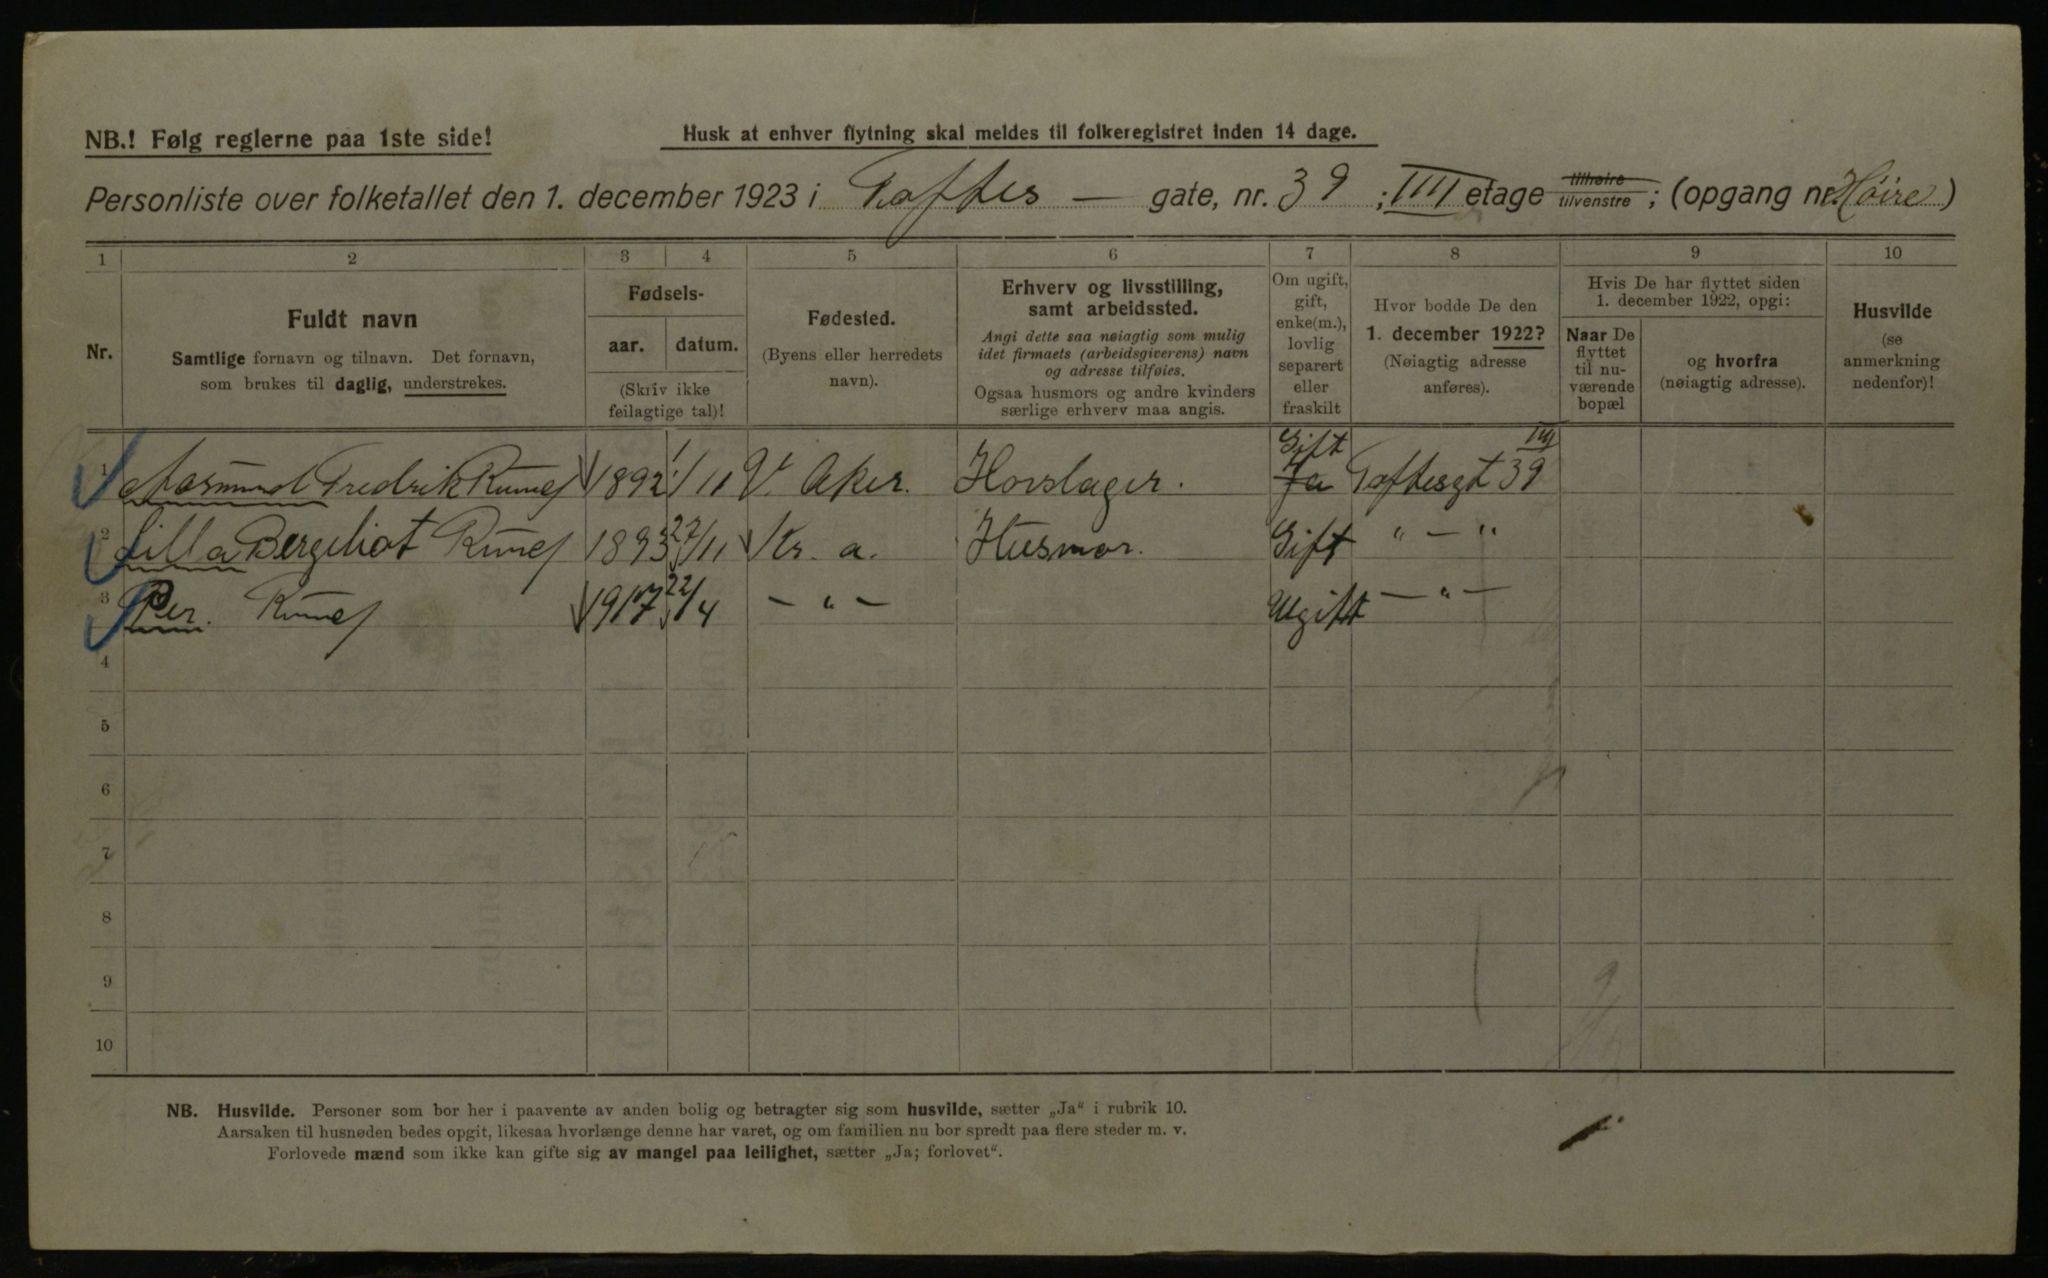 NB.! Følg reglerne paa 1ste side!
Husk at enhver flytning skal meldes til folkeregistret inden 14 dage.
Personliste over folketallet den 1. december 1923 i Toftes — gate, nr. 39 ; IIII etage tilhøire tilvenstre ; (opgang nr. Høire)
1 2 3 4 5 6 7 8 9 10
Nr.
Fuldt navn
Samtlige fornavn og tilnavn. Det fornavn,
som brukes til daglig, understrekes.
Fødsels-
aar. datum.
(Skriv ikke
feilagtige tal)!
Fødested.
(Byens eller herredets
navn).
Erhverv og livsstilling,
samt arbeidssted.
Angi dette saa nøiagtig som mulig
idet firmaets (arbeidsgiverens) navn
og adresse tilføies.
Ogsaa husmors og andre kvinders
særlige erhverv maa angis.
Om ugift,
gift,
enke(m.),
lovlig
separert
eller
fraskilt
Hvor bodde De den
1. december 1922?
(Nøiagtig adresse
anføres).
Hvis De har flyttet siden
1. december 1922, opgi:
Naar De
flyttet
til nu-
værende
bopæl
og hvorfra
(nøiagtig adresse).
Husvilde
(se
anmerkning
nedenfor)!
1 Aasmund Fredrik 1892 1/11 V. Aker. Hovslager. Ja Gift Toftesgt 39 IIII
2 Lilla Bergliot 1893 27/11 Kr. a. Husmor. Gift " — "
3 Per. 1917 22/4 — " — Ugift — " —
4
5
6
7
8
9
10
NB. Husvilde. Personer som bor her i paavente av anden bolig og betragter sig som husvilde, sætter „Ja“ i rubrik 10.
Aarsaken til husnøden bedes opgit, likesaa hvorlænge denne har varet, og om familien nu bor spredt paa flere steder m. v.
Forlovede mænd som ikke kan gifte sig av mangel paa leilighet, sætter „Ja; forlovet“.